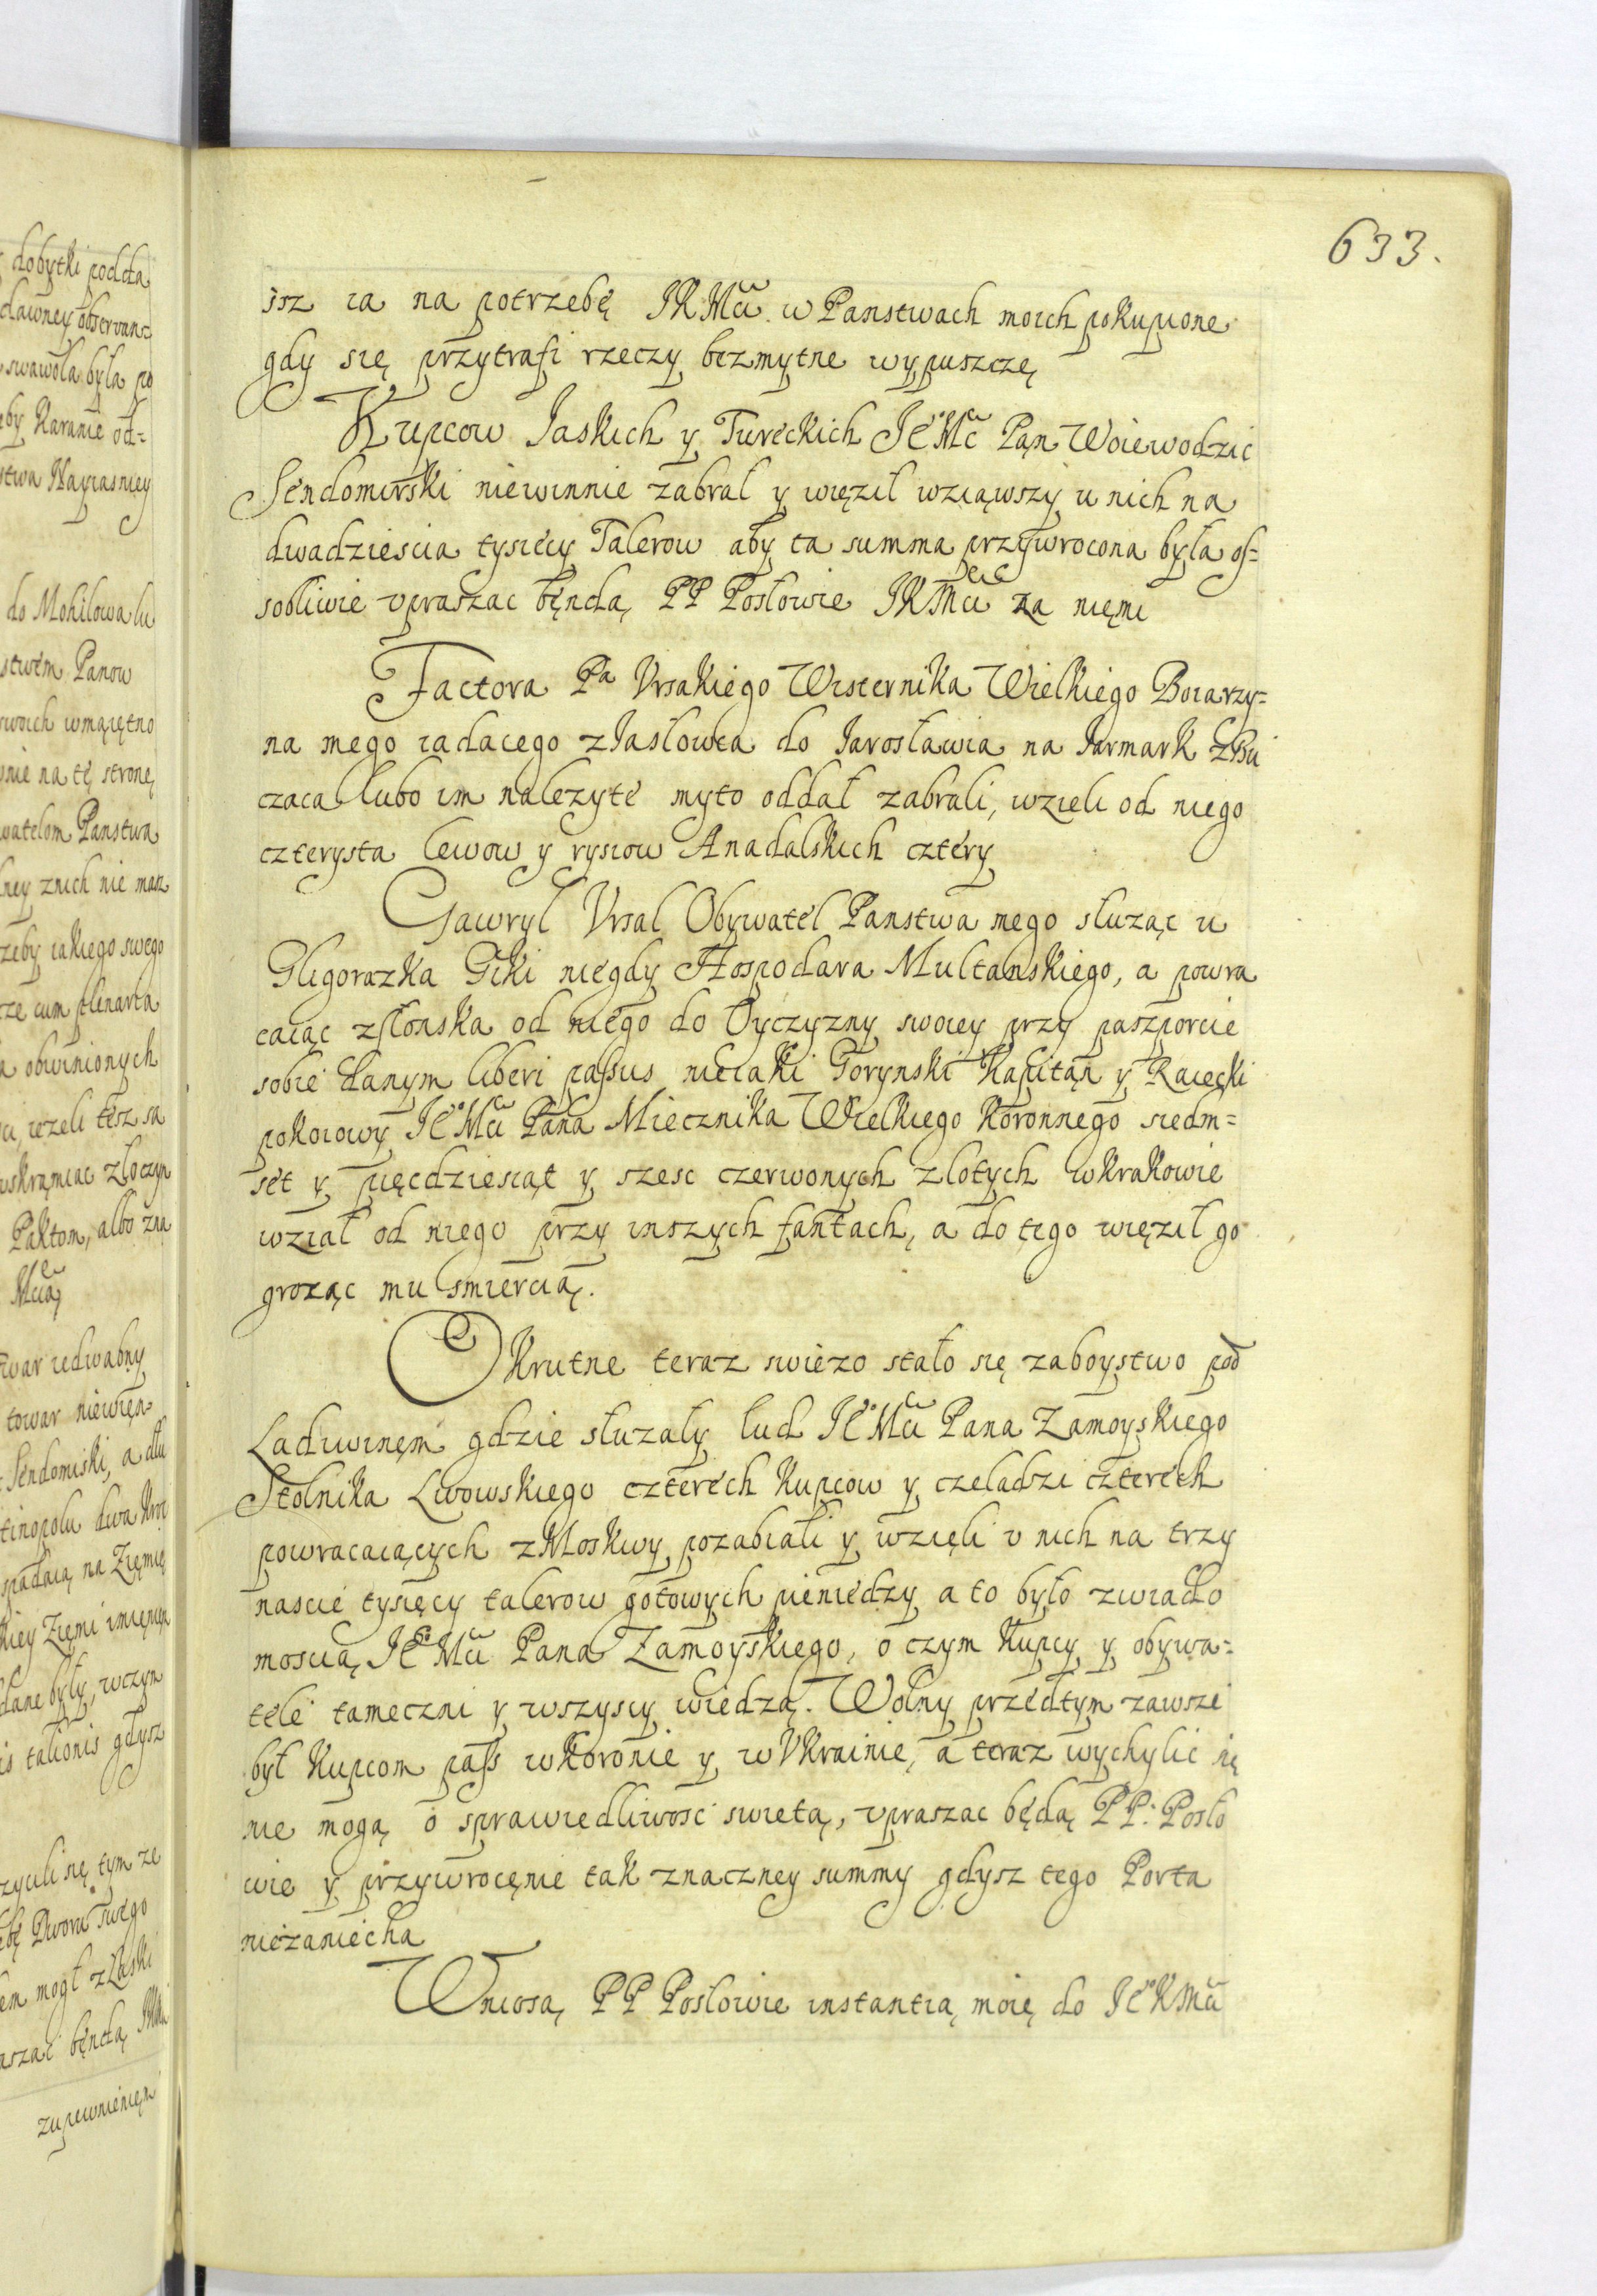 633.
isz ia na potrzebę JKMci w Panstwach moich pokupione
gdy się przytrafi rzeczy bezmytne wypuszczę
Kupcow Jaskich y Tureckich JeoMc Pan Woiewodzic
Sendomirski niewinnie zabrał y więzil wziąwszy u nich na
dwadziescia tysięcy Talerow aby ta summa przywrocona była os=
sobliwie vpraszac będą PP Posłowie JKMci za niemi
Factora Pa Vrsakiego Wisternika Wielkiego Boiarzy=
na mego iadacego z Jasłowca do Jarosławia na Jarmark z Bu
czaca lubo im nalezyte myto oddał zabrali, wzieli od niego
czterysta lewow y rysiow Anadalskich cztery
Gawryl Vrsal Obywatel Panstwa mego służąc u
Gligorazka Giki niegdy Hospodara Multanskiego, a powra
caiąc z Słonska od niego do Oyczyzny swoiey przy paszporcie
sobie danym liberi passus nieiaki Gorynski Kapitąn y Raiecki
pokoiowy JeoMci Pana Miecznika Wielkiego Koronnego siedm=
set y pięcdziesiąt y szesc czerwonych złotych w Krakowie
wziął od niego przy inszych fantach, a do tego więził go
grożąc mu smiercią.
Okrutne teraz swiezo stało się zaboystwo pod
Ladiwinęm gdzie służały lud JeoMci Pana Zamoyskiego
Stolnika Lwowskiego czterech Kupcow y czeladzi czterech
powracaiących z Moskwy pozabiali y wzięli v nich na trzy
nascie tysięcy talerow gotowych pieniedzy a to było z wiado
moscią JeoMci Pana Zamoyskiego, o czym Kupcy y obywa=
tele tameczni y wszyscy wiedzą. Wolny przedtym zawsze
był Kupcom pass w Koronie y w Vkrainie, a teraz wychylic się
nie mogą o sprawiedliwosc swietą, vpraszac będą PP: Posło
wie y przywrocęnie tak znaczney summy gdysz tego Porta
niezaniecha
Wniosą PP Posłowie instantią moię do JeoKMci
dobytki podda
dawney obserwanc
swawola była po
by Karanie od=
stwa Nayiasniey
do Mohilowa lu
stwem Panow
swoich wmaiętno
nie na tę stronę
watelom Panstwa
ney znich nie masz
zeby iakiego swego
cze cum plenaria
a obwinionych
ci iezeli tesz sa
uskramiac złoczyn
Paktom, albo zna
Mcią
towar iedwabny
towar niewięn
Sendomiski, a dla
tinopolu dwa kroc
spadaią na Zięmię
kiey Zięmi imięnięm
dane były, wczym
is talionis gdysz
zyuli się tym ze
bę Dworu swego
em mogł z łaski
aszac będą JKMci
zupewnieniem